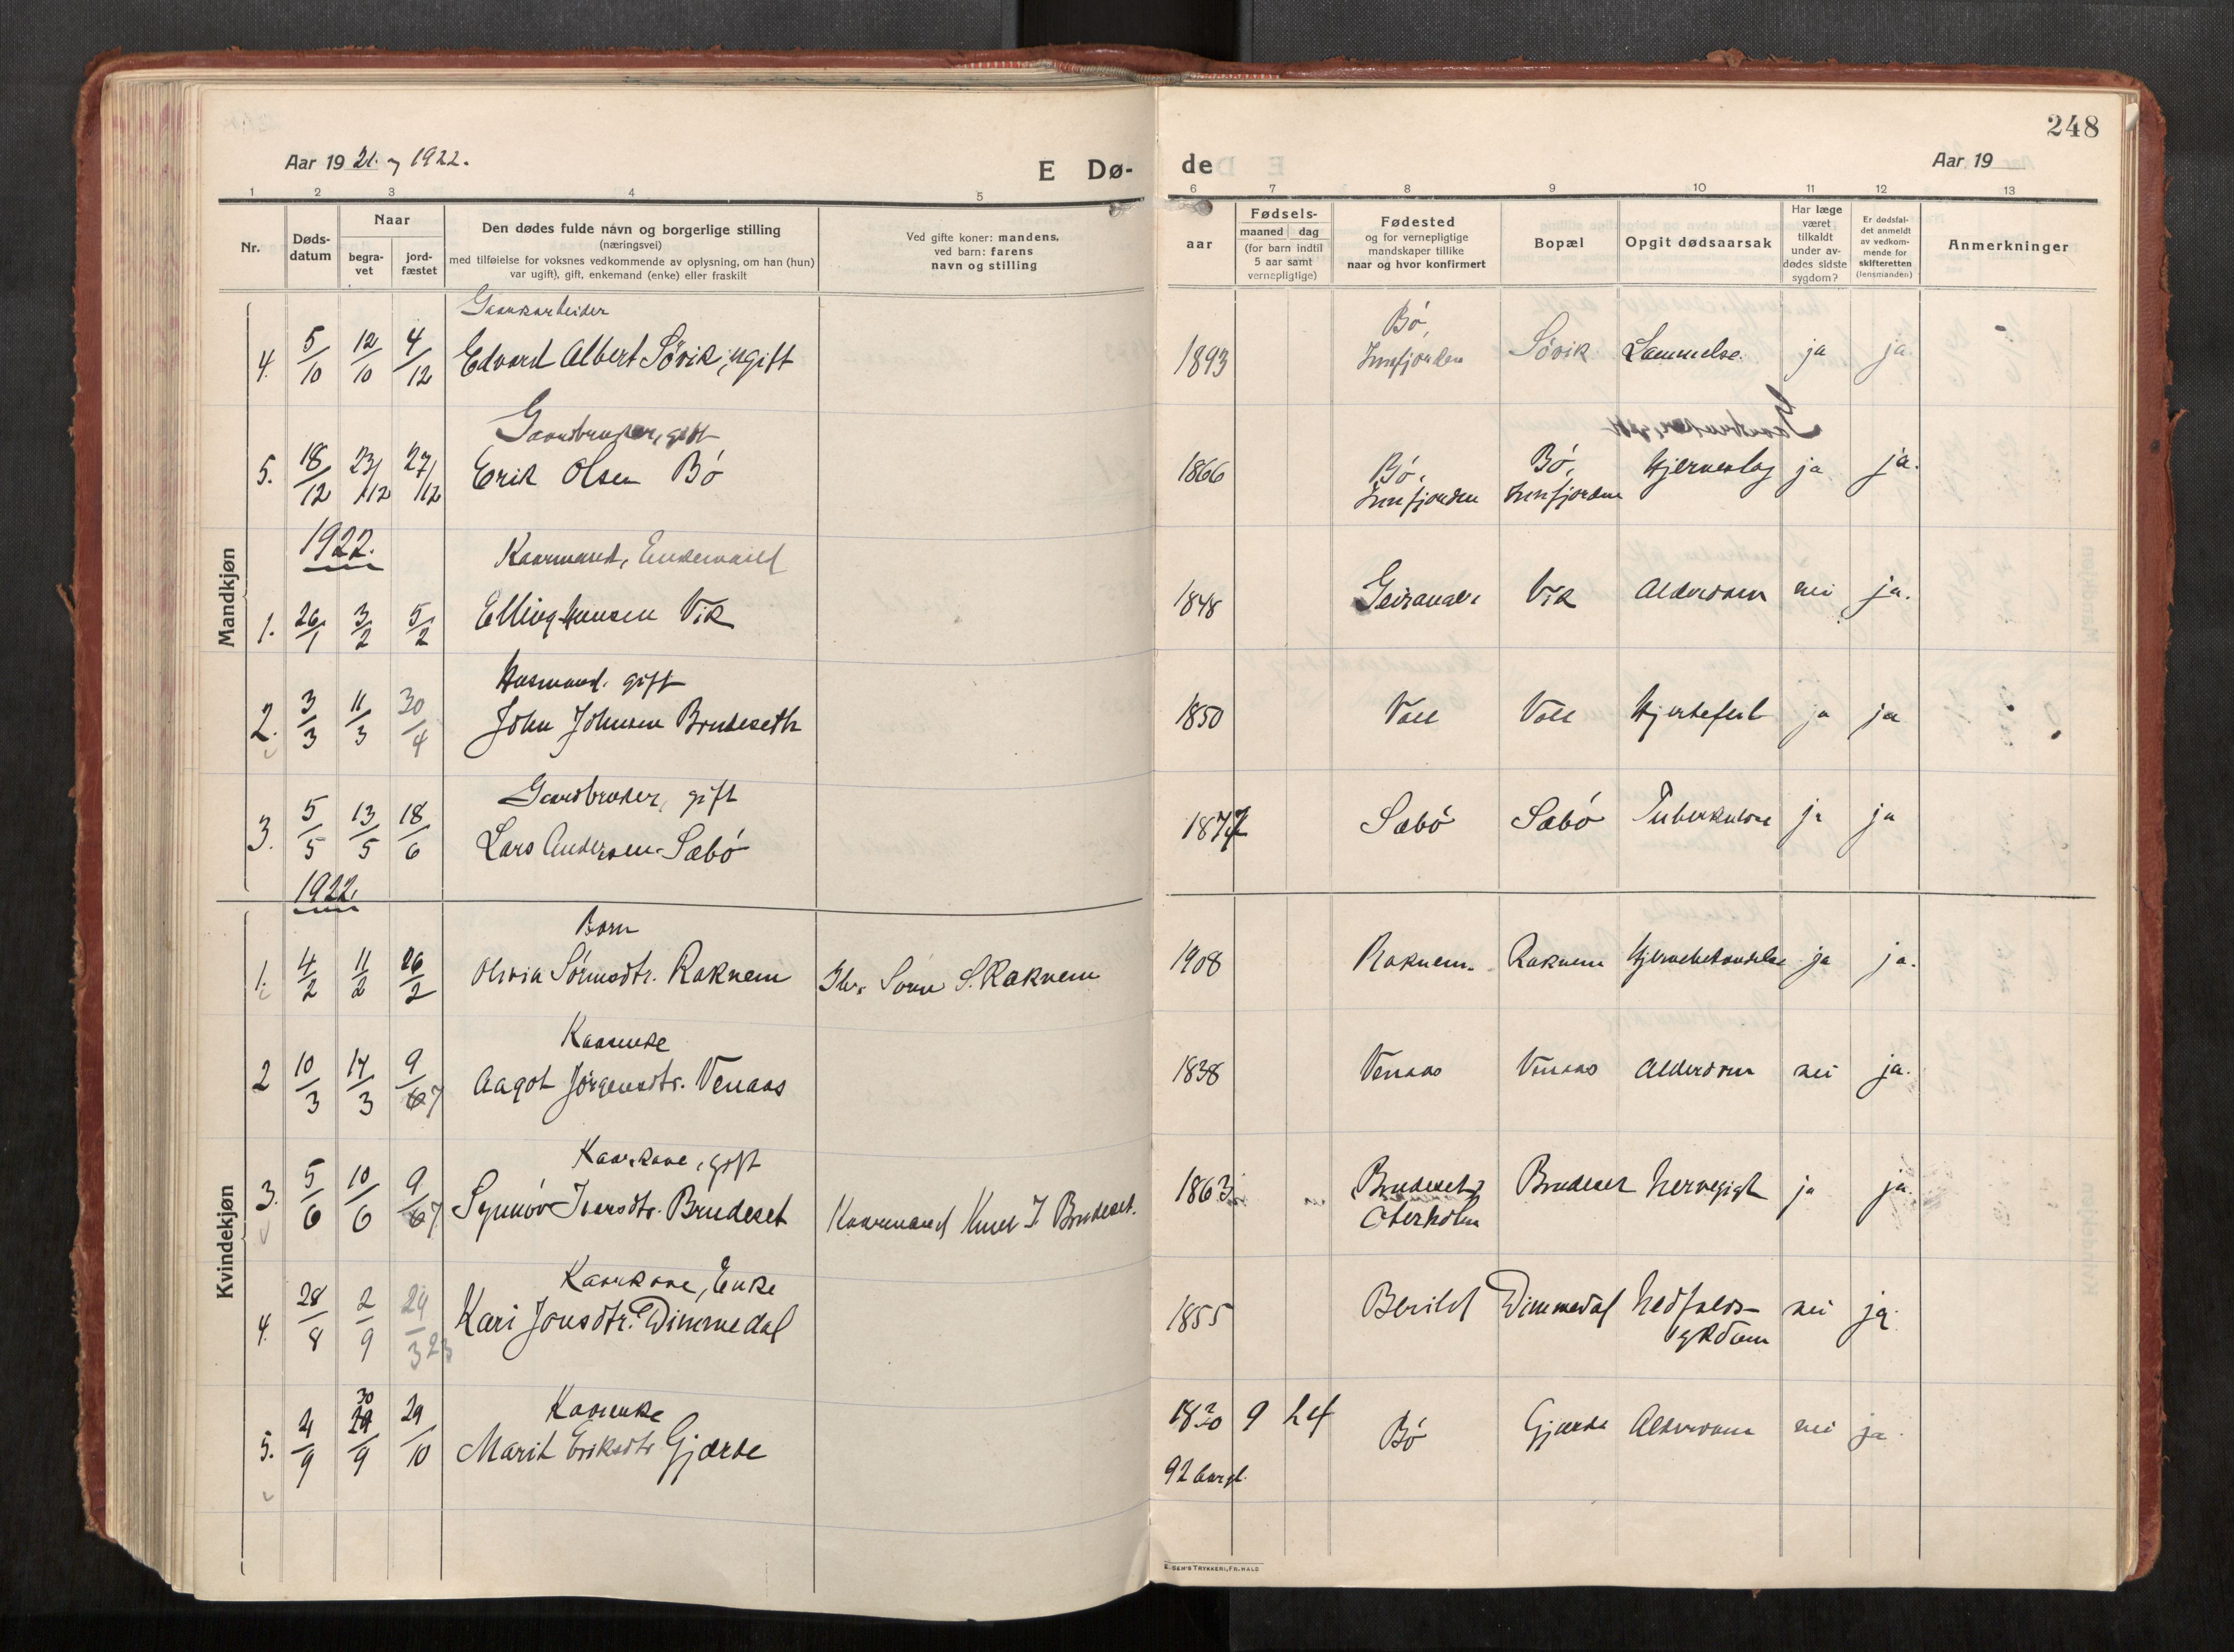 248
Aar 19 21. og 1922.
E Dø-
de
Aar 19
1 2 3 4 5 6 7 8 9 10 11 12 13
Nr.
Døds-
datum
Naar
begra-
vet
jord-
fæstet
Den dødes fulde navn og borgerlige stilling
(næringsvei)
med tilføielse for voksnes vedkommende av oplysning, om han (hun)
var ugift), gift, enkemand (enke) eller fraskilt
Ved gifte koner: mandens,
ved barn: farens
navn og stilling
aar
Fødsels-
maaned dag
(for barn indtil
5 aar samt
vernepligtige)
Fødested
og for vernepligtige
mandskaper tillike
naar og hvor konfirmert
Bopæl
Opgit dødsaarsak
Har læge
været
tilkaldt
under av-
dødes sidste
sygdom?
Er dødsfal-
det anmeldt
av vedkom-
mende for
skifteretten
(lensmanden)
Anmerkninger
Mandkjøn
Gaardsarbeider
4. 5/10 12/10 4/12 Edvard Albert Sövik, ugift 1893 Bö, Innfjorden Sövik Lammelse. ja ja.
Gaardbruker, gift
5. 18/12 23/12 27/12 Erik Olsen Bö 1866 Bö, Innfjorden Bö, Innfjorden Hjerneslag ja ja.
1922.
Kaarmand, Enkemand
1. 26/1 3/2 5/2 Elling Hansen Vik 1848 Geiranger Vik Alderdom nei ja.
Husmand. gift
2. 3/3 11/3 30/4 John Johnsen Brudeseth 1850 Voll Voll Hjertefeil ja ja
Gaardbruker, gift
3. 5/5 13/5 18/6 Lars Andersen Sæbö 1877 Sæbö Sæbö Tuberkulose ja ja
1922.
Kvindekjøn
Barn
1. 4/2 11/2 26/2 Olivia Sörensdtr. Raknem Gbr. Sören S. Raknem 1908 Raknem. Raknem Hjernebetændelse ja ja.
Kaarenke
2 10/3 14/3 9/7 Aagot Jörgensdtr. Venaas 1838 Venaas Venaas Alderdom nei ja.
Kaarkone, gift
3. 5/6 10/6 9/7 Synnöv Iversdtr. Brudeset Kaarmand Knut J. Brudeset. 1863 Brudeset, Oterholm Brudeset Nervegigt ja ja
Kaarkone, Enke
4. 28/8 2/9 29/3 23 Kari Jonsdtr. Dimmedal 1855 Berild Dimmedal Nedfalds- sykdom nei ja.
Kaarenke
5. 4/9 30/9 29/10 Marit Eriksdtr Gjærde 1830 9 24 Bö Gjærde Alderdom nei ja.
92 aar gl.